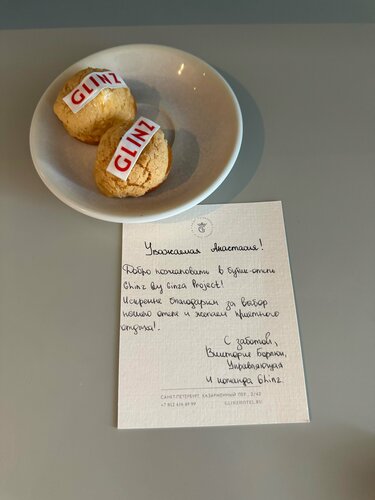 GLINZ
GLINZ
Уважаемая Анастасия!
Добро пожаловать в бутик-отель
Glinz By Ginza Project!
Искренне благодарим за выбор
нашего отеля и желаем приятного
отдыха!
С заботой,
Виктория
Управляющая
и команда Glinz.
САНКТ-ПЕТЕРБУРГ, КАЗАРМЕННЫЙ ПЕР., 2/42